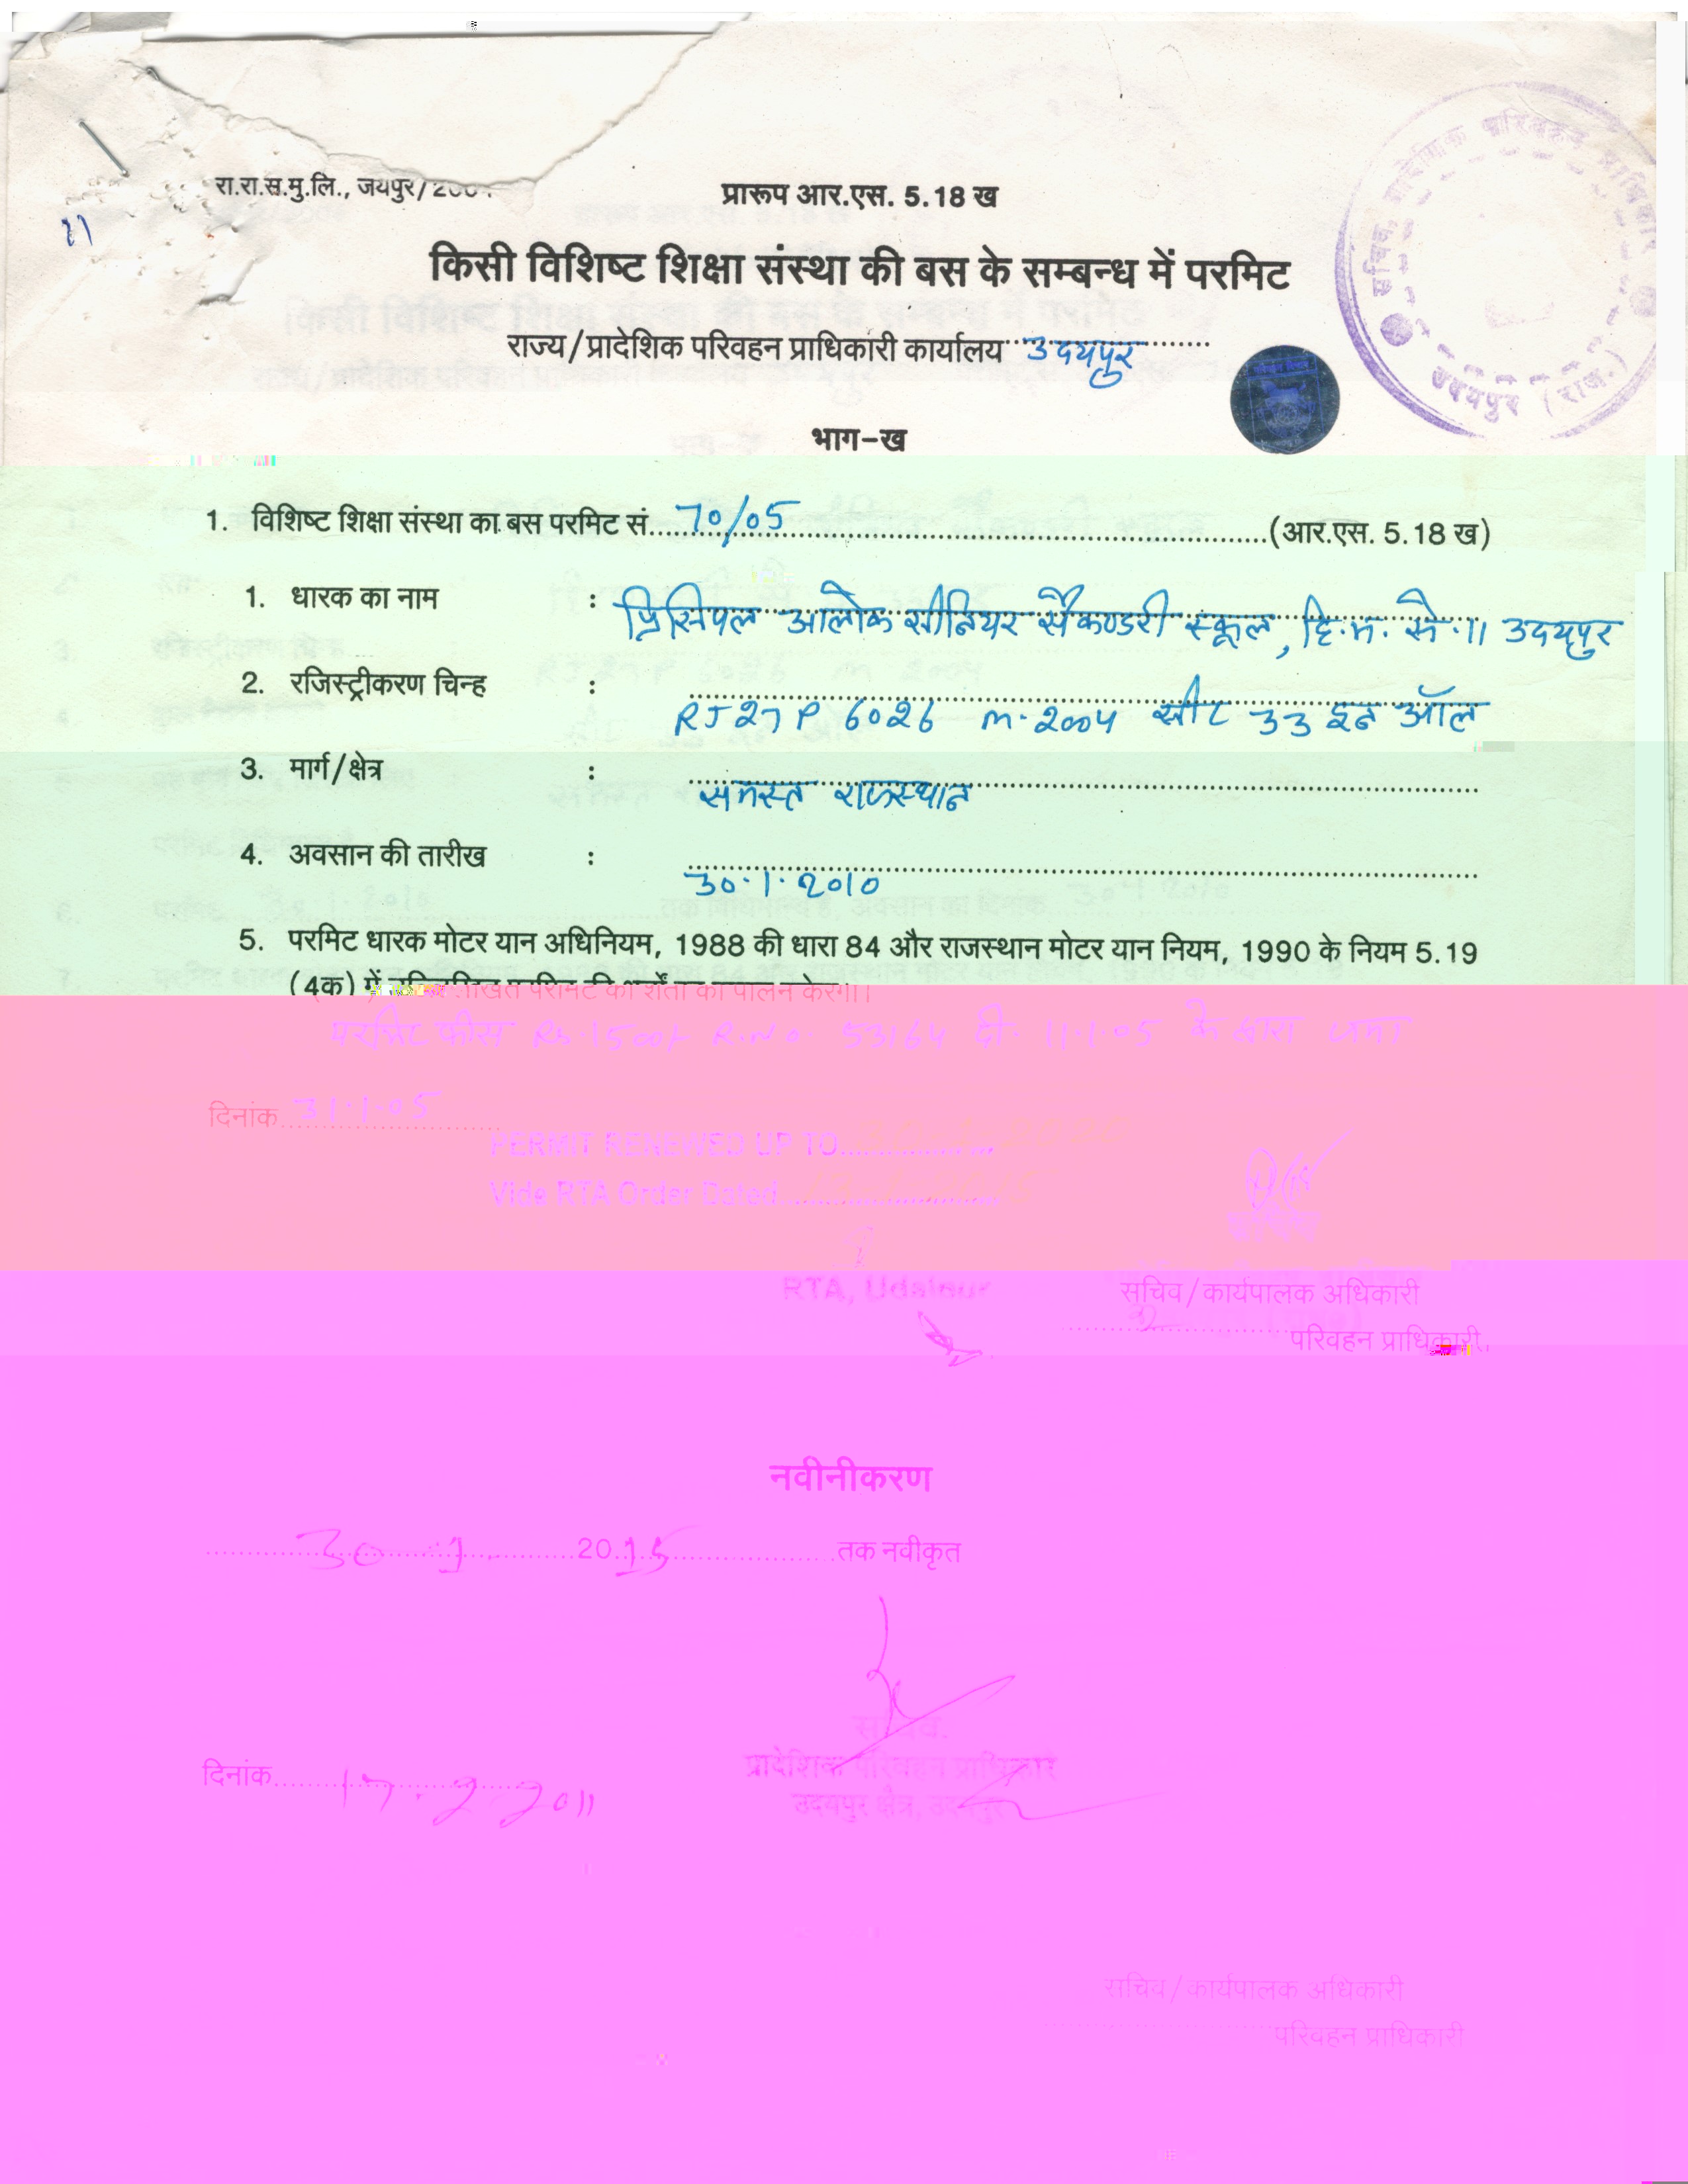 रा.रा.स.मु.लि., जयपुर/200
प्रारूप आर.एस. 5.18 ख
२१
किसी विशिष्ट शिक्षा संस्था की बस के सम्बन्ध में परमिट
राज्य/प्रादेशिक परिवहन प्राधिकारी कार्यालय उदयपुर
सचिव, प्रादेशिक परिवहन प्राधिकार
उदयपुर (राज.)
भाग-ख
1. विशिष्ट शिक्षा संस्था का बस परमिट सं. 70/05 (आर.एस. 5.18 ख)
1. धारक का नाम : प्रिंसिपल आलोक सीनियर सैकण्डरी स्कूल, हि.म. से. 11 उदयपुर
2. रजिस्ट्रीकरण चिन्ह : RJ27P 6026 m-2004 सीट 33 इन ऑल
3. मार्ग/क्षेत्र : समस्त राजस्थान
4. अवसान की तारीख : 30.1.2010
5. परमिट धारक मोटर यान अधिनियम, 1988 की धारा 84 और राजस्थान मोटर यान नियम, 1990 के नियम 5.19
(4क) में उल्लिखित परमिट की शर्तों का पालन करेगा।
परमिट फीस Rs. 1500/- R.No. 53164 दी. 11.1.05 के द्वारा जमा
दिनांक 31.1.05
PERMIT RENEWED UP TO
Vide RTA Order Dated
RTA, Udaipur
सचिव
सचिव/कार्यपालक अधिकारी
परिवहन प्राधिकारी
नवीनीकरण
30 - 1. 2015 तक नवीकृत
सचिव.
प्रादेशिक परिवहन प्राधिकार
उदयपुर क्षेत्र, उदयपुर
दिनांक 17-2-2011
सचिव/कार्यपालक अधिकारी
परिवहन प्राधिकारी